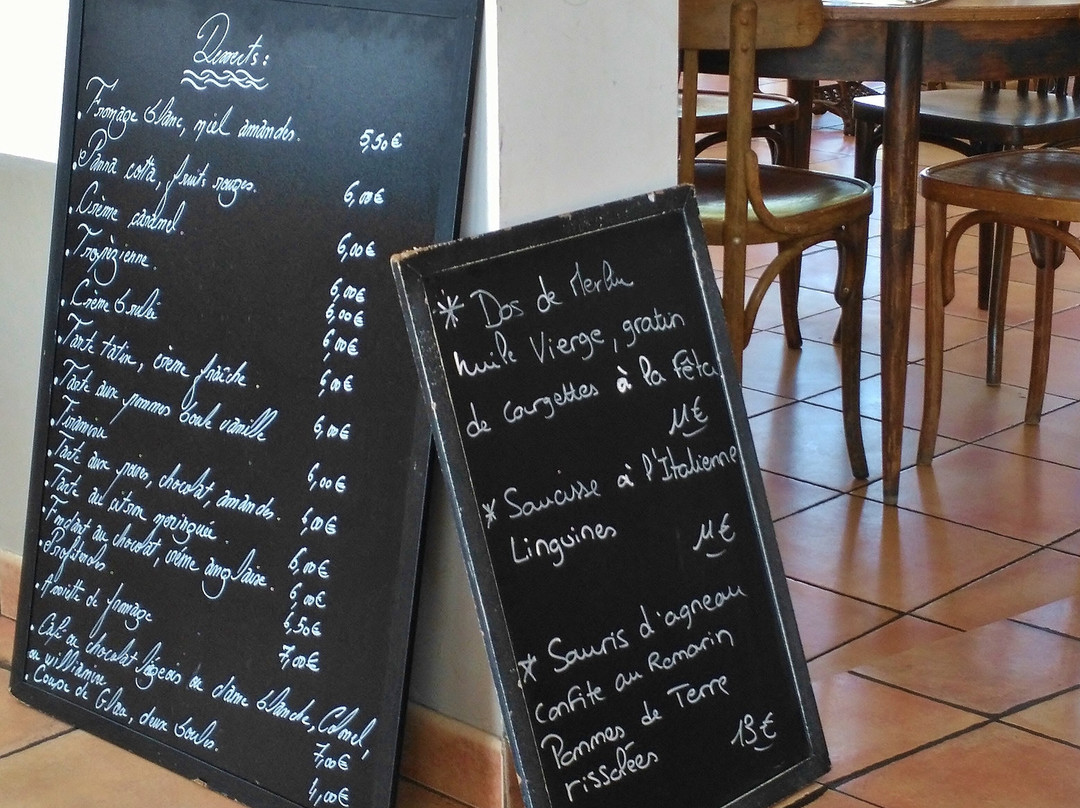 Desserts :
. Fromage blanc, miel amandes. 5,50€
. Panna cotta, fruits rouges. 6,00€
. Crème caramel. 6,00€
. Tropézienne. 6,00€
6,00€
. Crème brulée 6,00€
. Tarte tatin, crème fraîche. 6,00€
. Tarte aux pommes boule vanille 6,00€
. Tiramisu 6,00€
. Tarte aux poires, chocolat, amandes. 6,00€
. Tarte au citron meringuée. 6,00€
. Fondant au chocolat, crème anglaise. 6,00€
. Profiteroles. 6,50€
. Assiette de fromage 7,00€
. Café ou chocolat liégeois ou dame blanche, Colonel,
ou williamine 7,00€
. Coupe de Glace, deux boules. 4,00€
* Dos de Merlu
huile Vierge, gratin
de Courgettes à la Fêta
11€
* Saucisse à l'Italienne
Linguines 11€
* Souris d'agneau
Confite au Romarin
Pommes de Terre
rissolées 19€